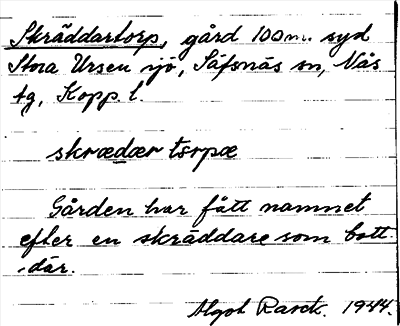 Skräddartorp, gård 100 m. syd
Stora Ursen sjö, Säfsnäs sn, Nås
tg, Kopp. l.
skrædær tsrpæ
Gården har fått namnet
efter en skräddare som bott
där.
Algot 1944.